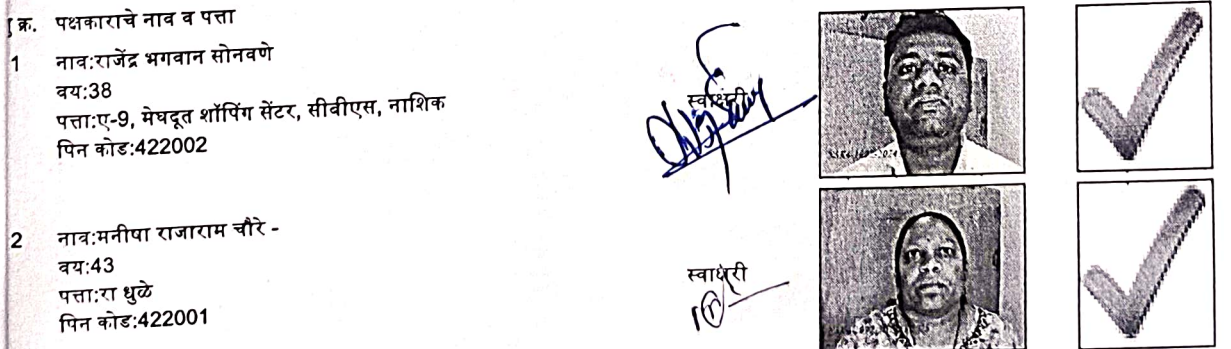 क्र. पक्षकाराचे नाव व पत्ता
1 नाव:राजेंद्र भगवान सोनवणे
वय:38
पत्ता:ए-9, मेघदूत शॉपिंग सेंटर, सीबीएस, नाशिक
पिन कोड:422002
स्वाक्षरी
2 नाव:मनीषा राजाराम चौरे -
वय:43
पत्ता:रा धुळे
पिन कोड:422001
स्वाक्षरी